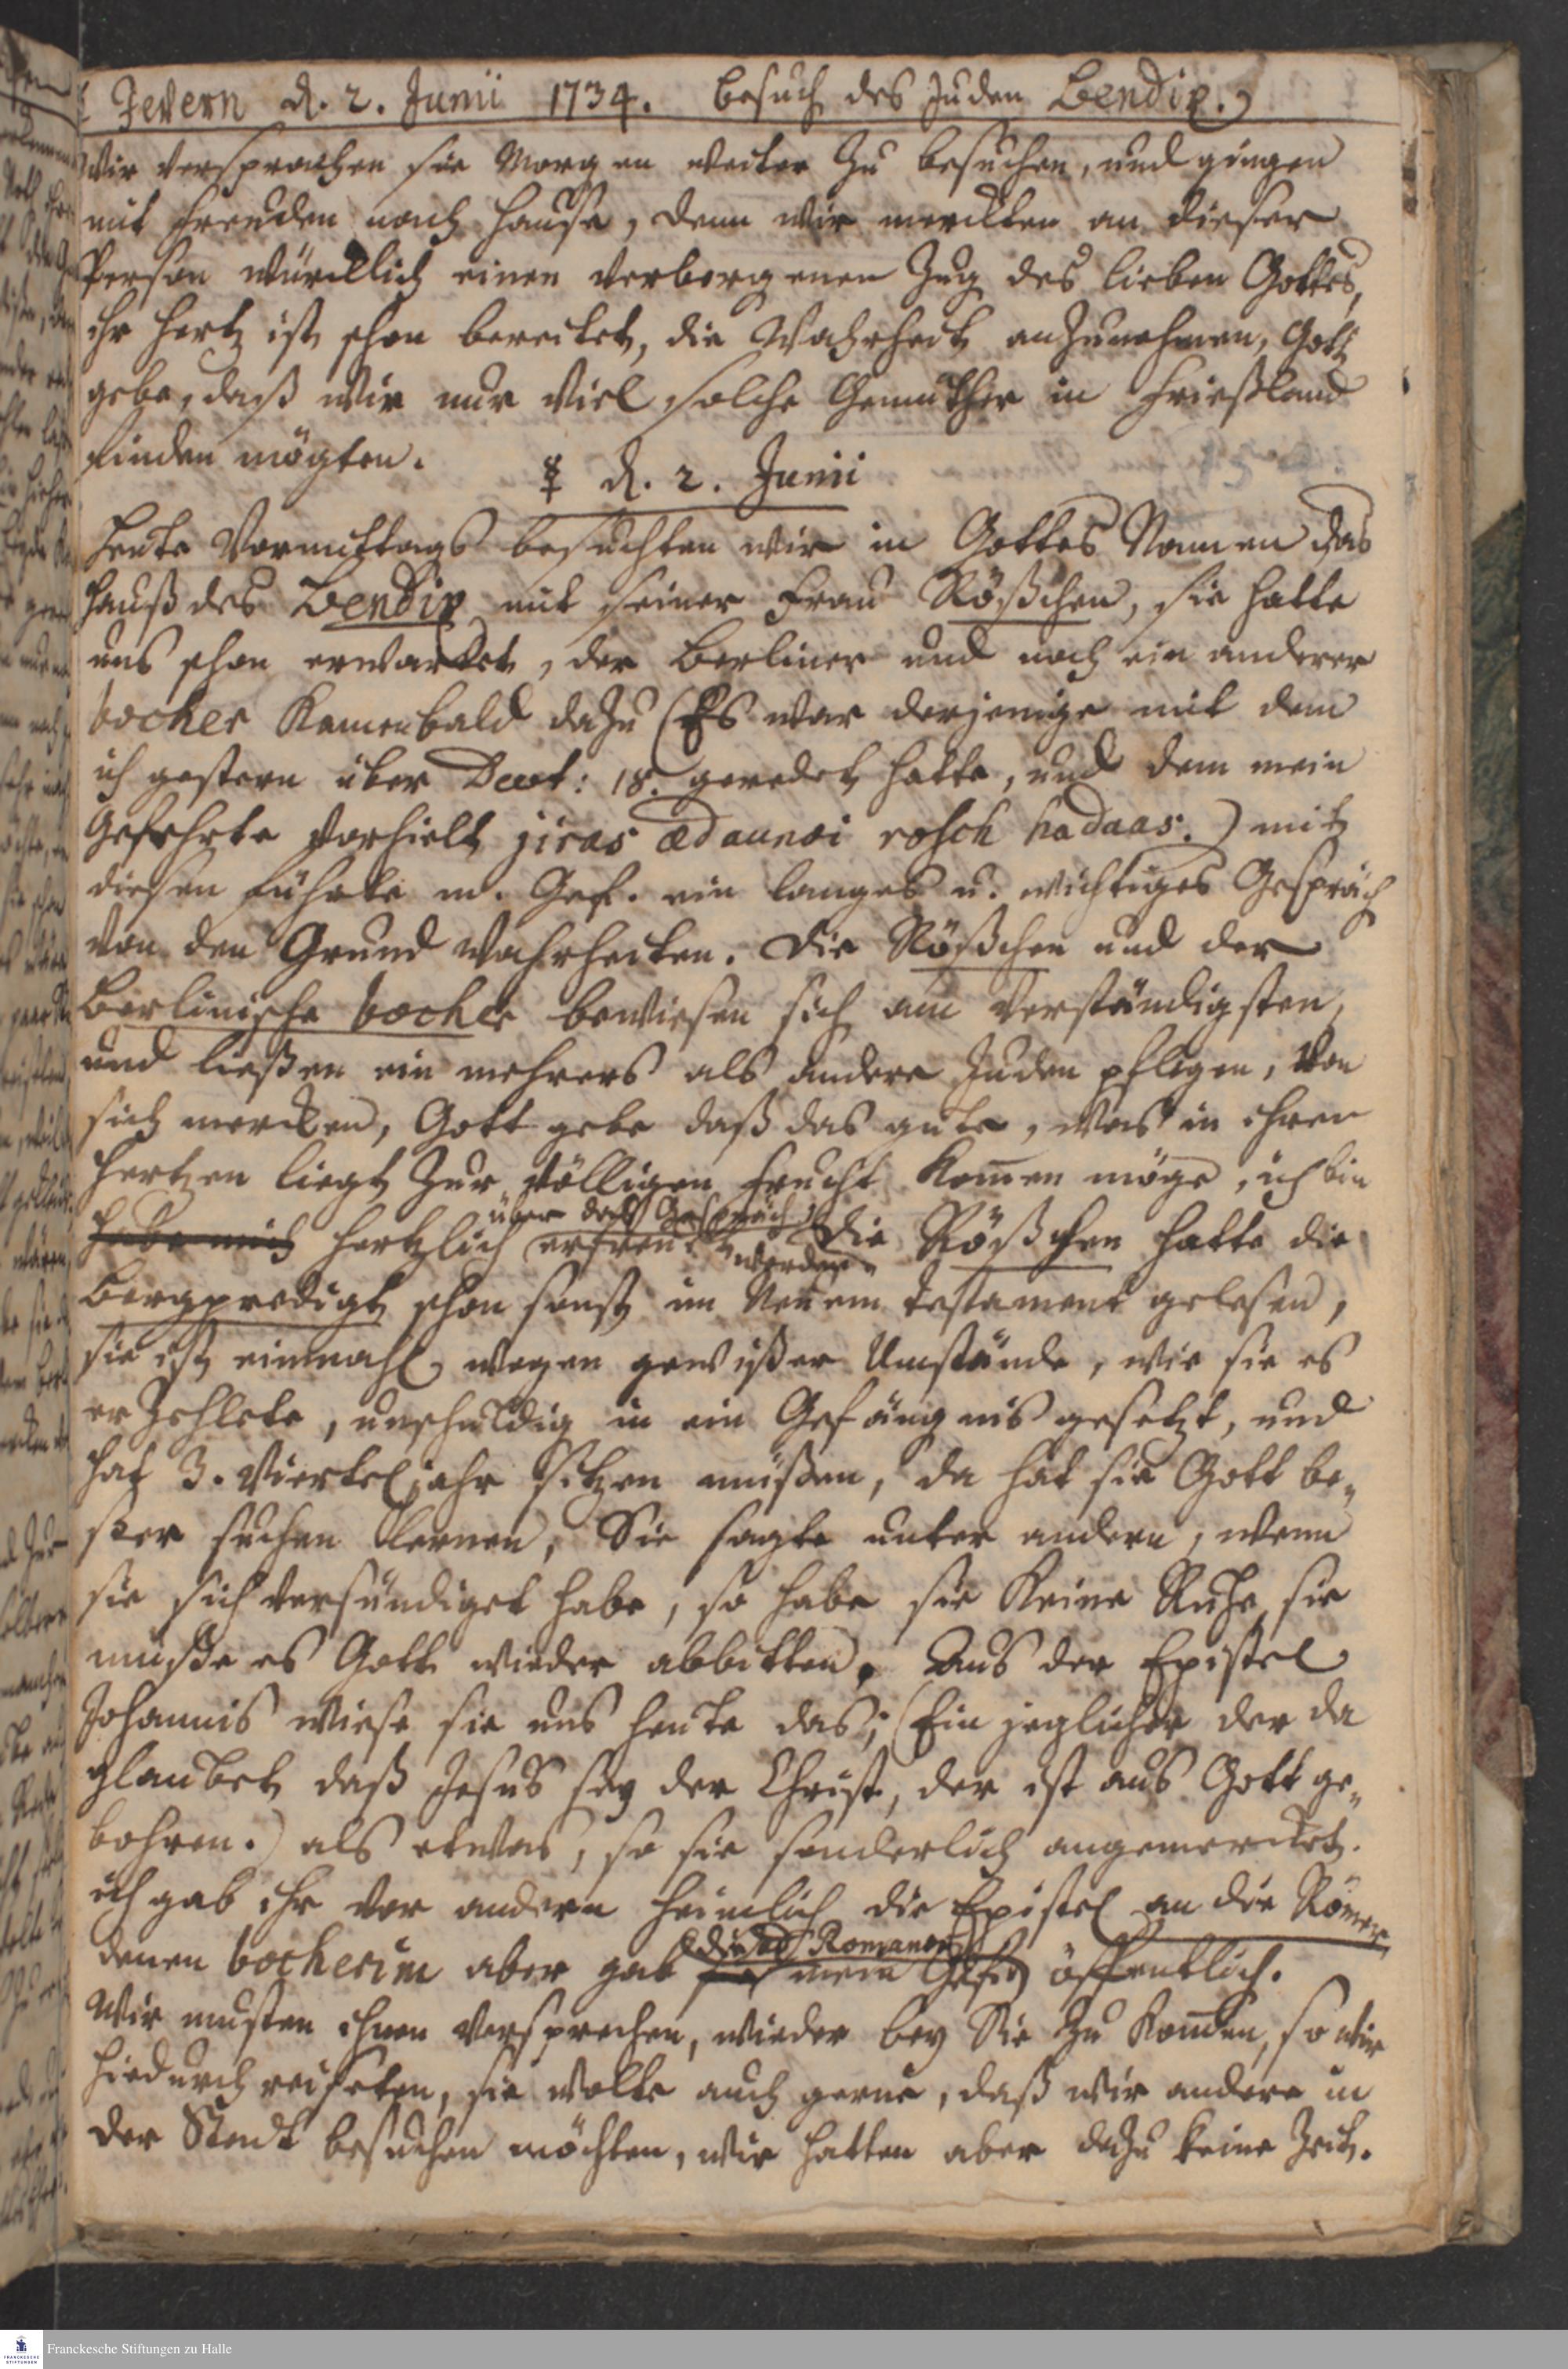 Jevern d. 2. Junii 1734. besuch des Juden Bendix.
Wir versprachen sie Morgen weiter zu besuchen, und gingen
mit freuden nach hause, denn wir merckten an dieser
Person würcklich einen verborgenen Zug des lieben Gottes,
ihr Hertz ist schon bereitet, die Wahrheit anzunehmen, Gott
gebe, daß wir nur viel solche Gemüther in Frießland
finden mögten.
☿ d. 2. Junii
Heute Vormittags besuchten wir in Gottes Namen das
Hauß des Bendix mit seiner Frau Rößchen, sie hatte
uns schon erwartet, der Berliner und noch ein anderer
bocher Kamen bald dazu (Es war derjenige mit dem
ich gestern über Deut: 18. geredet hatte, und dem mein
Gefehrte vorhielt jiras ædaunoi rosch hadaas.) mit
diesen führte m. Gef. ein langes u. wichtiges Gespräch
von den Grund Wahrheiten. Die Rößchen und der
Berlinische bocher bewiesen sich am verständigsten,
und ließen ein mehrers als andere Juden pflegen, von
sich mercken, Gott gebe daß das gute, was in ihren
Hertzen liegt zur völligen Frucht Kom̅en möge, ich bin
über das Gespräch
habe mich hertzlich erfreut worden Die Rößchen hatte die
Bergpredigt schon sonst im Neuem Testament gelesen,
sie ist einmahl wegen gewißer Umstände, wie sie es
erzehlete, unschuldig in ein Gefängnis gesetzt, und
hat 3. Viertel jahr sitzen müßen, da hat sie Gott be„
ßer suchen lernen, Sie sagte unter andern, wenn
sie sich versündiget habe, so habe sie Keine Ruhe sie
müße es Gott wieder abbitten. Aus der Epistel
Johannis wiese sie uns heute das; (Ein jeglicher der da
glaubet daß Jesus sey der Christ, der ist aus Gott ge„
bohren.) als etwas, so sie sonderlich angemercket.
ich gab ihr vor andern heimlich die Epistel an die Römer,
die ad Romanos
denen bocherim aber gab mein Gef. öffentlich.
Wir musten ihnen versprechen, wieder bey Sie zu Kom̅en, so wir
hiedurch reiseten, sie wolte auch gerne, daß wir andere in
der Stadt besuchen möchten, wir hatten aber dazu keine Zeit.
Franckesche Stiftungen zu Halle
FRANCKESCHE
STIFTUNGEN